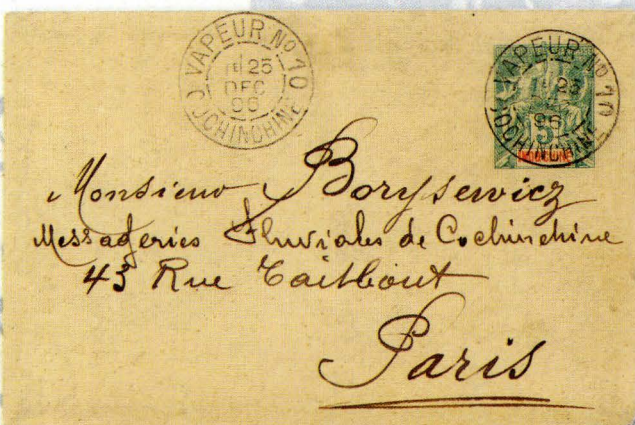 VAPEUR No 10
25
DEC
96
COCHINCHINE
VAPEUR No 10
25
96
COCHINCHINE
5
INDOCHINE
Monsieur Borysewicz
Messageries Fluviales de Cochinchine
43 Rue Taitbout
Paris